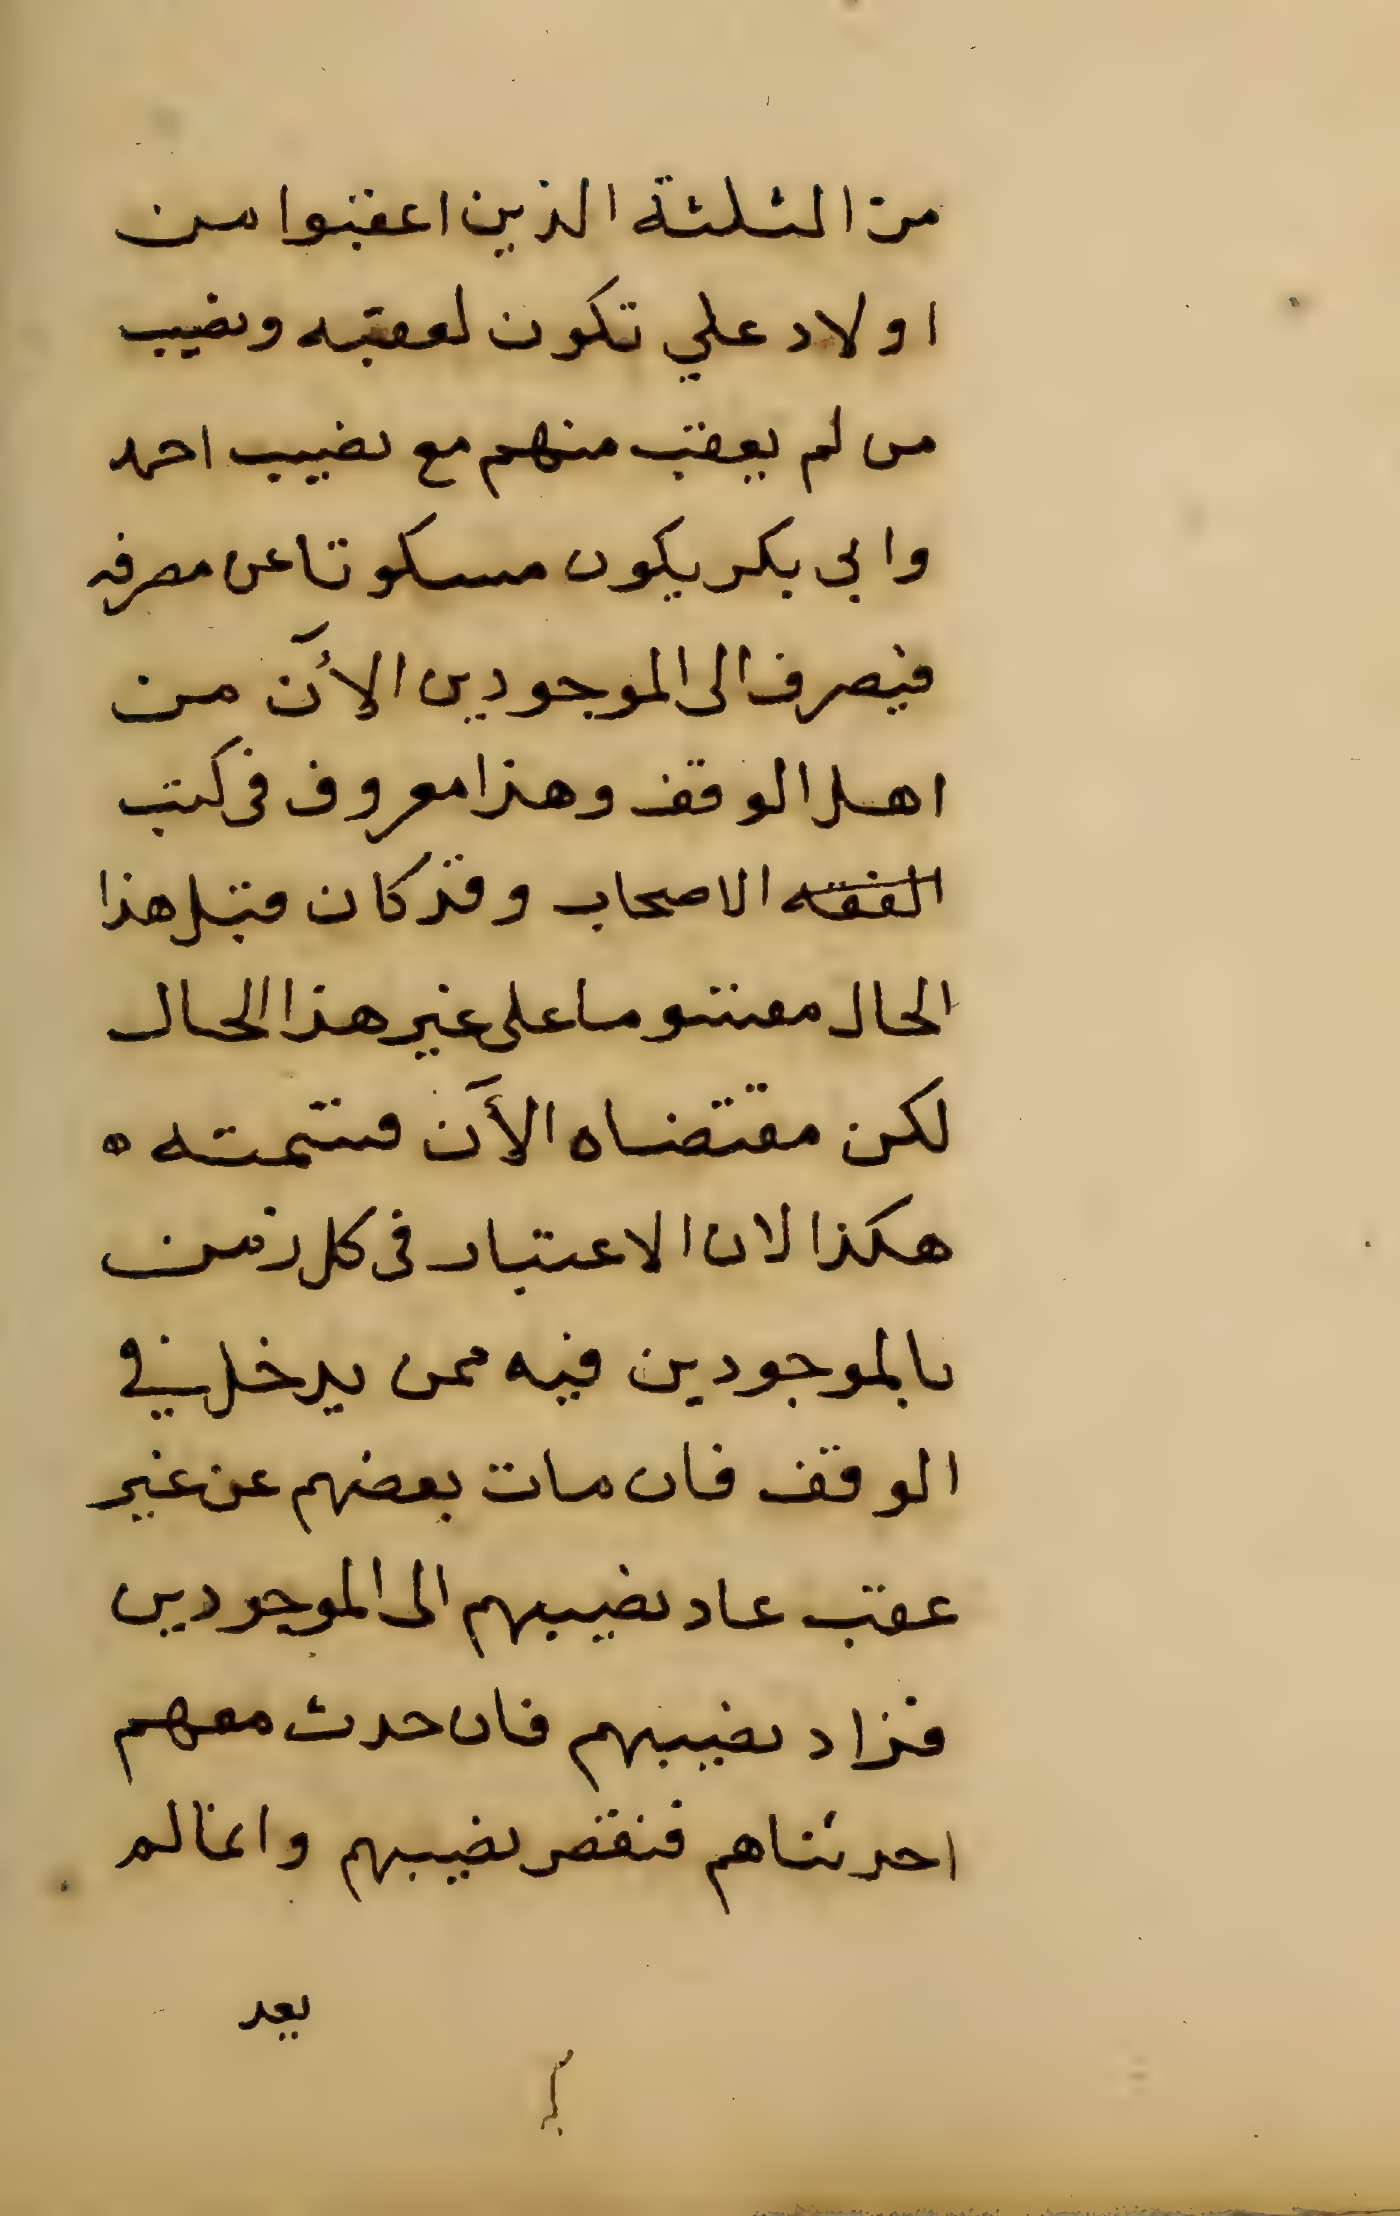 من الثلثة الذين اعقبوا من
اولاد علي تكون لعقبه ونصيب
من لم يعقب منهم مع نصيب احمد
وابى بكر يكون مسكوتا عن مصرفه
فيصرف الى الموجودين الآن من
اهل الوقف وهذا معروف فى كتب
الفقه الاصحاب وقد كان قبل هذا
الحال مقسوما على غير هذا الحال
لكن مقتضاه الآن قسمته ه
هكذا لان الاعتبار فى كل زمن
بالموجودين فيه ممن يدخل في
الوقف فان مات بعضهم عن غير
عقب عاد نصيبهم الى الموجودين
فزاد نصيبهم فان حدث معهم
احد شاهم فنقص نصيبهم وانما لم
يعد